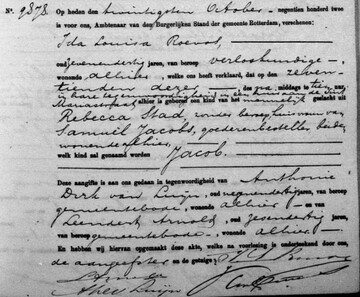 N°. 9878.
Op heden den twintigsten October – negentien honderd twee
is voor ons, Ambtenaar van den Burgerlijken Stand der gemeente Rotterdam, verschenen:
Ida Louisa
oud zevenendertig jaren, van beroep verloskundige –
wonende alhier, welke ons heeft verklaard, dat op den zeven-
tienden dezer, des middags te tien uur,
in hare tegenwoordigheid in een huis aan de
alhier is geboren een kind van het mannelijk geslacht uit
Rebecca Stad, zonder beroep, huisvrouw van
Samuel Jacobs, goederenbesteller, beiden
wonende alhier,
welk kind zal genaamd worden Jacob.
Deze aangifte is aan ons gedaan in tegenwoordigheid van Anthonie
Dirk van Luijn, oud negenendertig jaren, van beroep
gemeentebode, wonende alhier – en van
Leendert Arnold, oud zesenveertig jaren,
van beroep gemeentebode, wonende alhier –
En hebben wij hiervan opgemaakt deze akte, welke na voorlezing is onderteekend door ons,
de aangeefster en de getuigen.